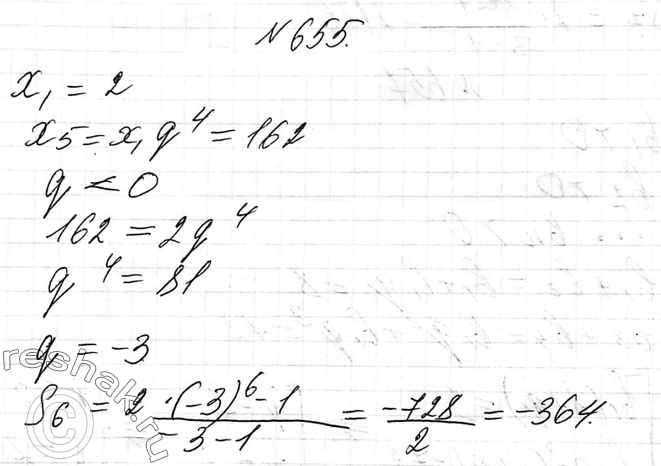 №655.
x₁ = 2
x5 = x₁ q⁴ = 162
q < 0
162 = 2q⁴
q⁴ = 81
q = -3
S₆ = 2 · (-3)⁶ - 1 / -3 - 1 = -728 / 2 = -364.
reshak.ru